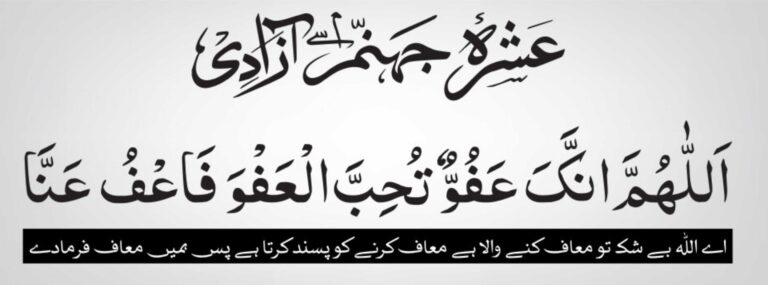 عَشرۂ جہنمّ سے آزادِی
اَللّٰهُمَّ اِنَّكَ عَفُوٌّ تُحِبُّ الْعَفْوَ فَاعْفُ عَنَّا
اے اللہ بے شک تو معاف کنے والا ہے معاف کرنے کو پسند کرتا ہے پس ہمیں معاف فرمادے